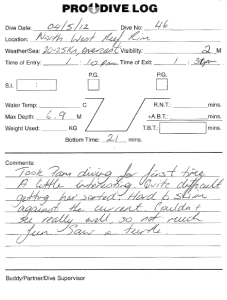 PRO DIVE LOG
Dive Date: 04/5/12 Dive No: 46
Location: North West Reef Rim
Weather/Sea: 20-25Kn, overcast Visibility: 2 M
Time of Entry: 1 : 10 pm Time of Exit: 1 : 31pm
P.G. P.G.
S.I. :
Water Temp: C R.N.T.: mins.
Max Depth: 6.9 M +A.B.T.: mins.
Weight Used: KG T.B.T.: mins.
Bottom Time: 21 mins.
Comments:
Took Pam diving for first time
A little interesting. Quite difficult
getting her sorted. Hard to swim
against the current. Couldn't
see really well, so not much
fun. Saw a turtle
Buddy/Partner/Dive Supervisor